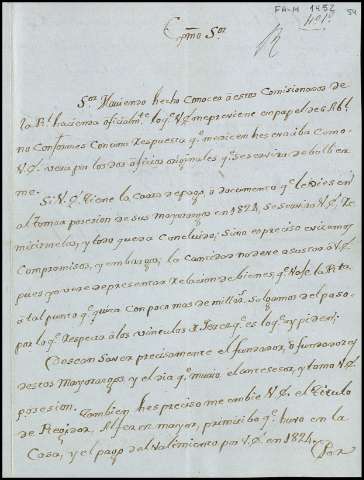 FA-M 1452
54
Exmo Sor
Sor. Haviendo hecho conocer a estos Comisionados de
la Rl. hacienda oficialmte. lo q. V.E. me previene en papel de 5 Abl.
no conformes con una respuesta q. me dicen hes criba como
V.E. vera por los dos oficios originales q. se servira debolber
me.
Si V.E. tiene la Carta de pago, o documento q. le dies en
al tomar posesion de sus mayorazgos en 1824, se servira V.E. re
mitirmelo, y todo queda concluido; sino es preciso evitemos
Compromisos, y embargos, la cantidad no deve asustar a V.E.
pues yo vere de presentar relacion de bienes, q. no se
a tal punto q. quiza con poco mas de mil rs. salgamos del paso
por lo q. respecta a los vinculos de Jerez q. es lo q. aqui piden;
Desean saver precisamente el fundador, o fundadores
de estos Mayorazgos y el dia q. murio el antecesor, y tomo V.E.
posesion. Tambien hes preciso me embie V.E. el Titulo
de Regidor, Alferez mayor, primitibo q. huvo en la
Casa, y el pago del Valimiento por V.E. en 1824, y Por